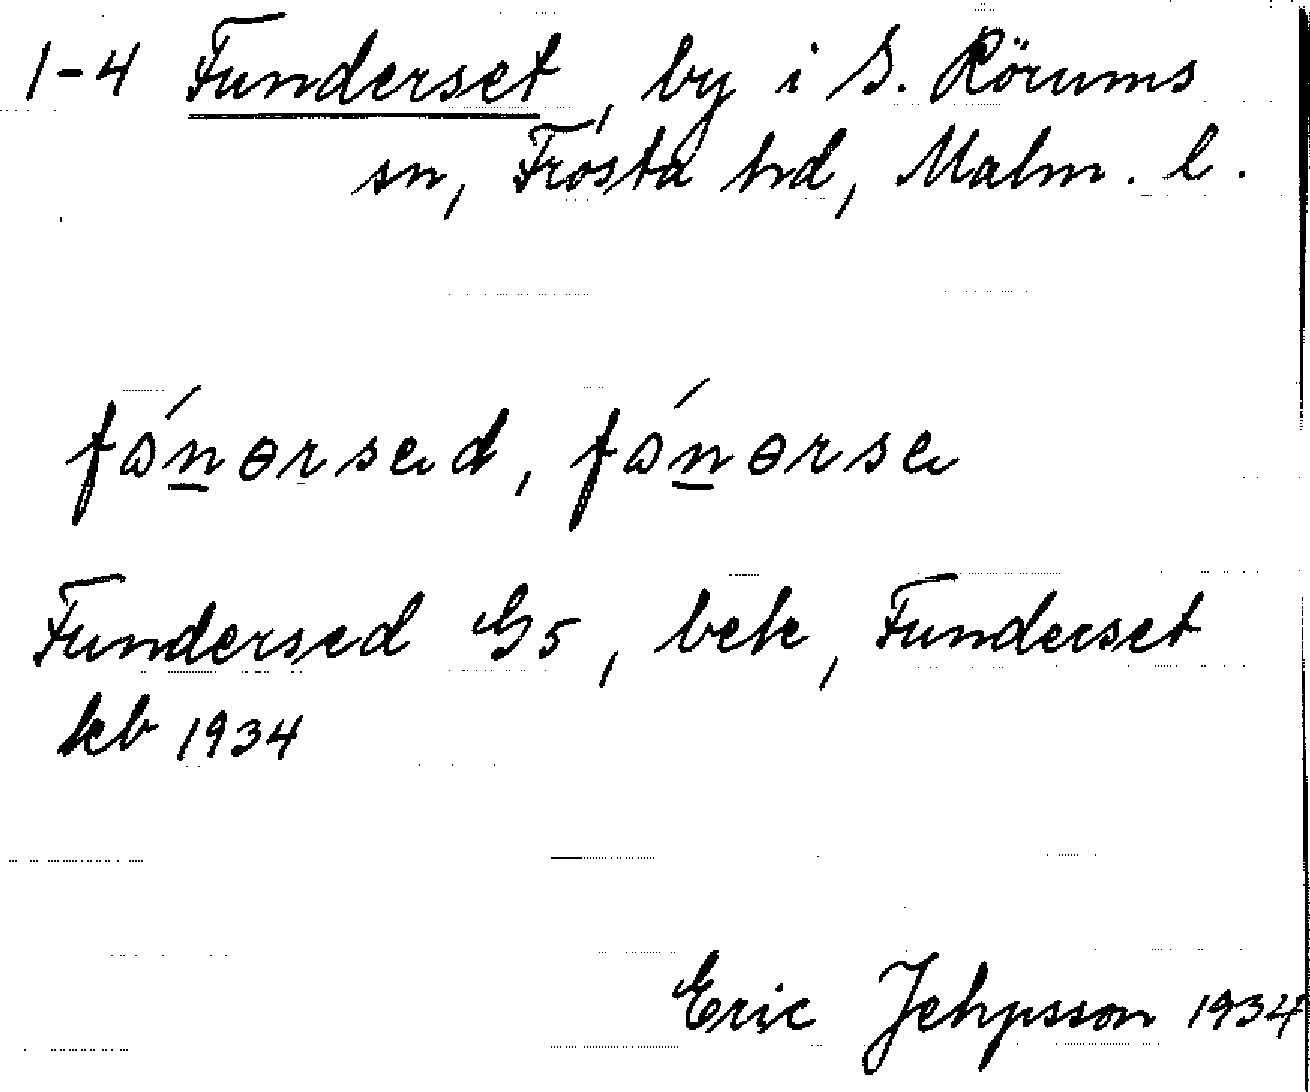 1-4 Funderset, by i S. Rörums
sn, Frosta hd, Malm. l.
fánərsed, fánərse
Fundersed G5, bek, Funderset
kb 1934
Eric Jehpsson 1934